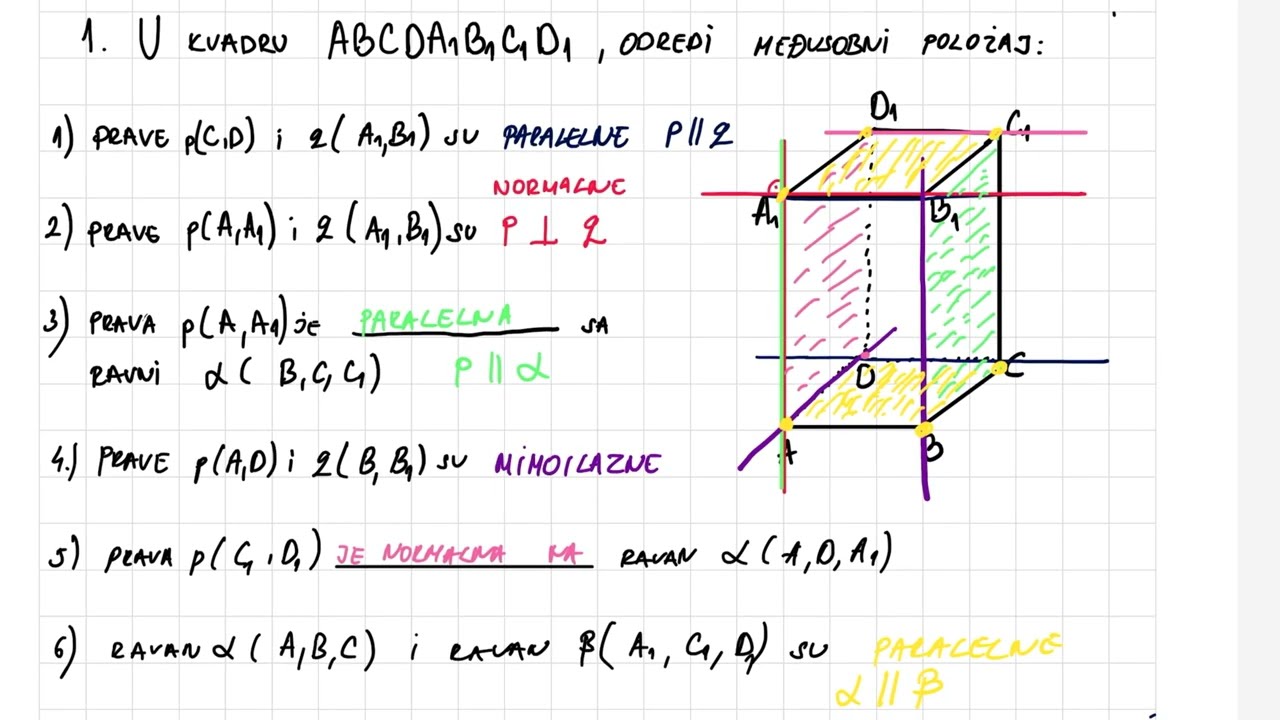 1. U KVADRU ABCDA₁B₁C₁D₁, ODREDI MEĐUSOBNI POLOŽAJ:
1) PRAVE p(C,D) i q(A₁,B₁) SU PARALELNE p || q
NORMALNE
2) PRAVE p(A,A₁) i q(A₁,B₁) SU p ⊥ q
3) PRAVA p(A,A₁) JE PARALELNA SA
RAVNI α(B,C,C₁) p || α
4.) PRAVE p(A,D) i q(B,B₁) SU MIMOILAZNE
5) PRAVA p(C₁,D₁) JE NORMALNA NA RAVAN α(A,D,A₁)
6) RAVAN α(A,B,C) i RAVAN β(A₁,C₁,D₁) SU PARALELNE
α || β
D₁
C₁
A₁
B₁
D
C
A
B